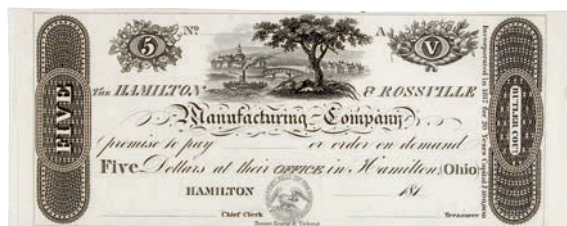 5 Nº A V
The HAMILTON & ROSSVILLE
Manufacturing Company
promise to pay or order on demand
Five Dollars at their OFFICE in Hamilton, (Ohio)
HAMILTON 181
Chief Clerk Treasurer
FIVE
Incorporated in 1817 for 20 Years Capital
BUTLER COY